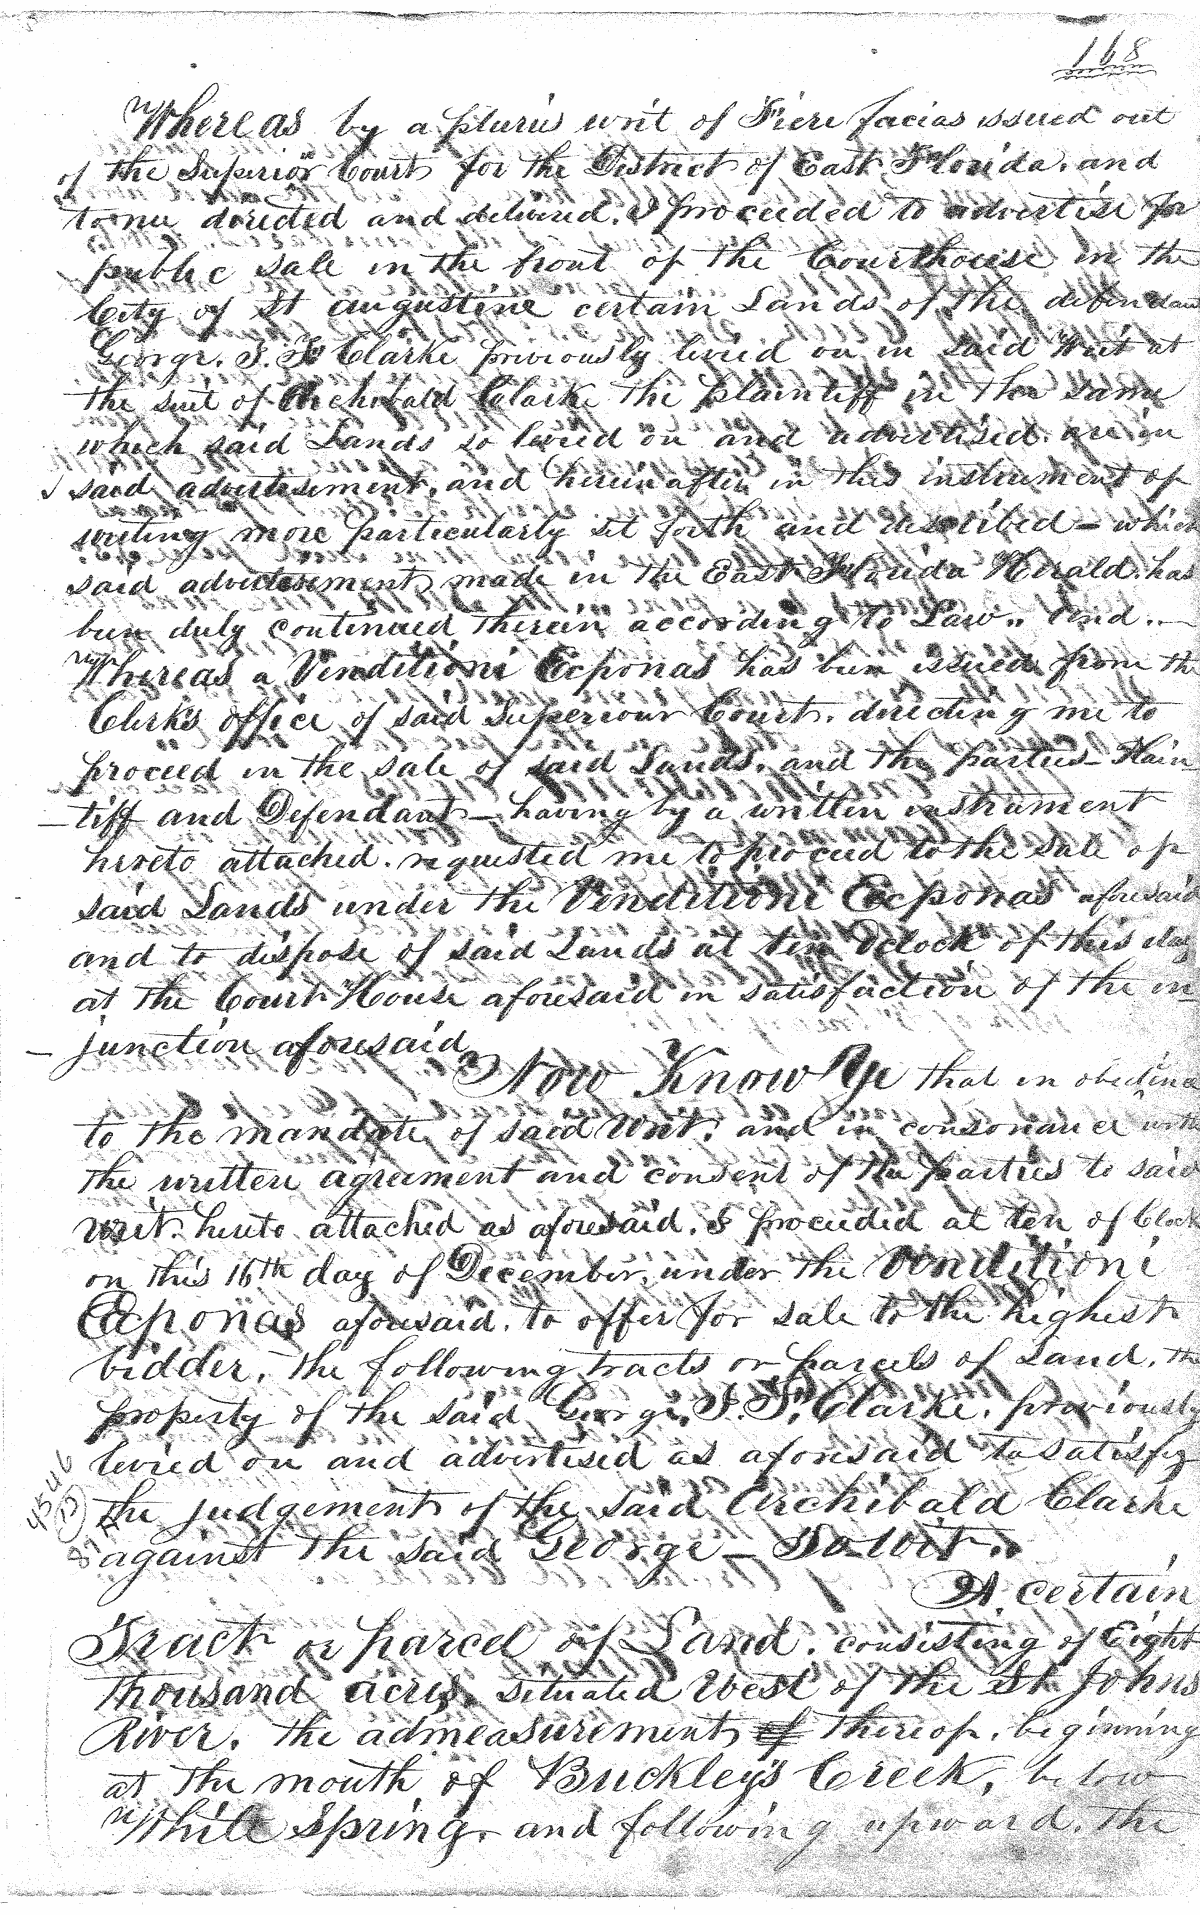 168
Whereas by a pluris writ of Fiere facias issued out
of the Superior Court for the District of East Florida, and
to me directed and delivered. I proceeded to advertise for
public sale in the front of the Courthouse in the
City of St Augustine certain Lands of the defendan
George. J. F. Clarke previously levied on in said Writ at
the suit of Archibald Clarke the plaintiff in the same
which said Lands so levied on and advertised. are in
said advertisement, and hereinafter in this instrument of
writing more particularly set forth and described – which
said advertisement made in the East Florida Herald. has
been duly continued therein according to Law.. And..—
Whereas a Venditioni Exponas has been issued from the
Clerk's office of said Superiour Court. directing me to
proceed in the sale of said Lands, and the parties – Plain
– tiff and Defendant – having by a written instrument
hereto attached. requested me to proceed to the sale of
said Lands under the Venditioni Exponas aforesaid
and to dispose of said Lands at ten Oclock of this day
at the Court House aforesaid in satisfaction of the in
– junction aforesaid
Now Know Ye that in obedince
to the mandate of said Writ. and in consonance with
the written agreement and consent of the parties to said
writ. hereto attached as aforesaid. I proceeded at ten of Clock
on this 16th day of December, under the Venditioni
Exponas aforesaid. to offer for sale to the highest
bidder, the following tracts or parcels of Land. the
property of the said George. J. F. Clarke. previously
levied on and advertised as aforesaid to satisfy
the judgement of the said Archibald Clarke
against the said George – To wit..
A certain
Tract or parcel of Land. consisting of Eight
thousand acres, situated West of the St Johns
River. the admeasurement of thereof. beginning
at the mouth of Buckley's Creek, below
White Spring, and following upward. the